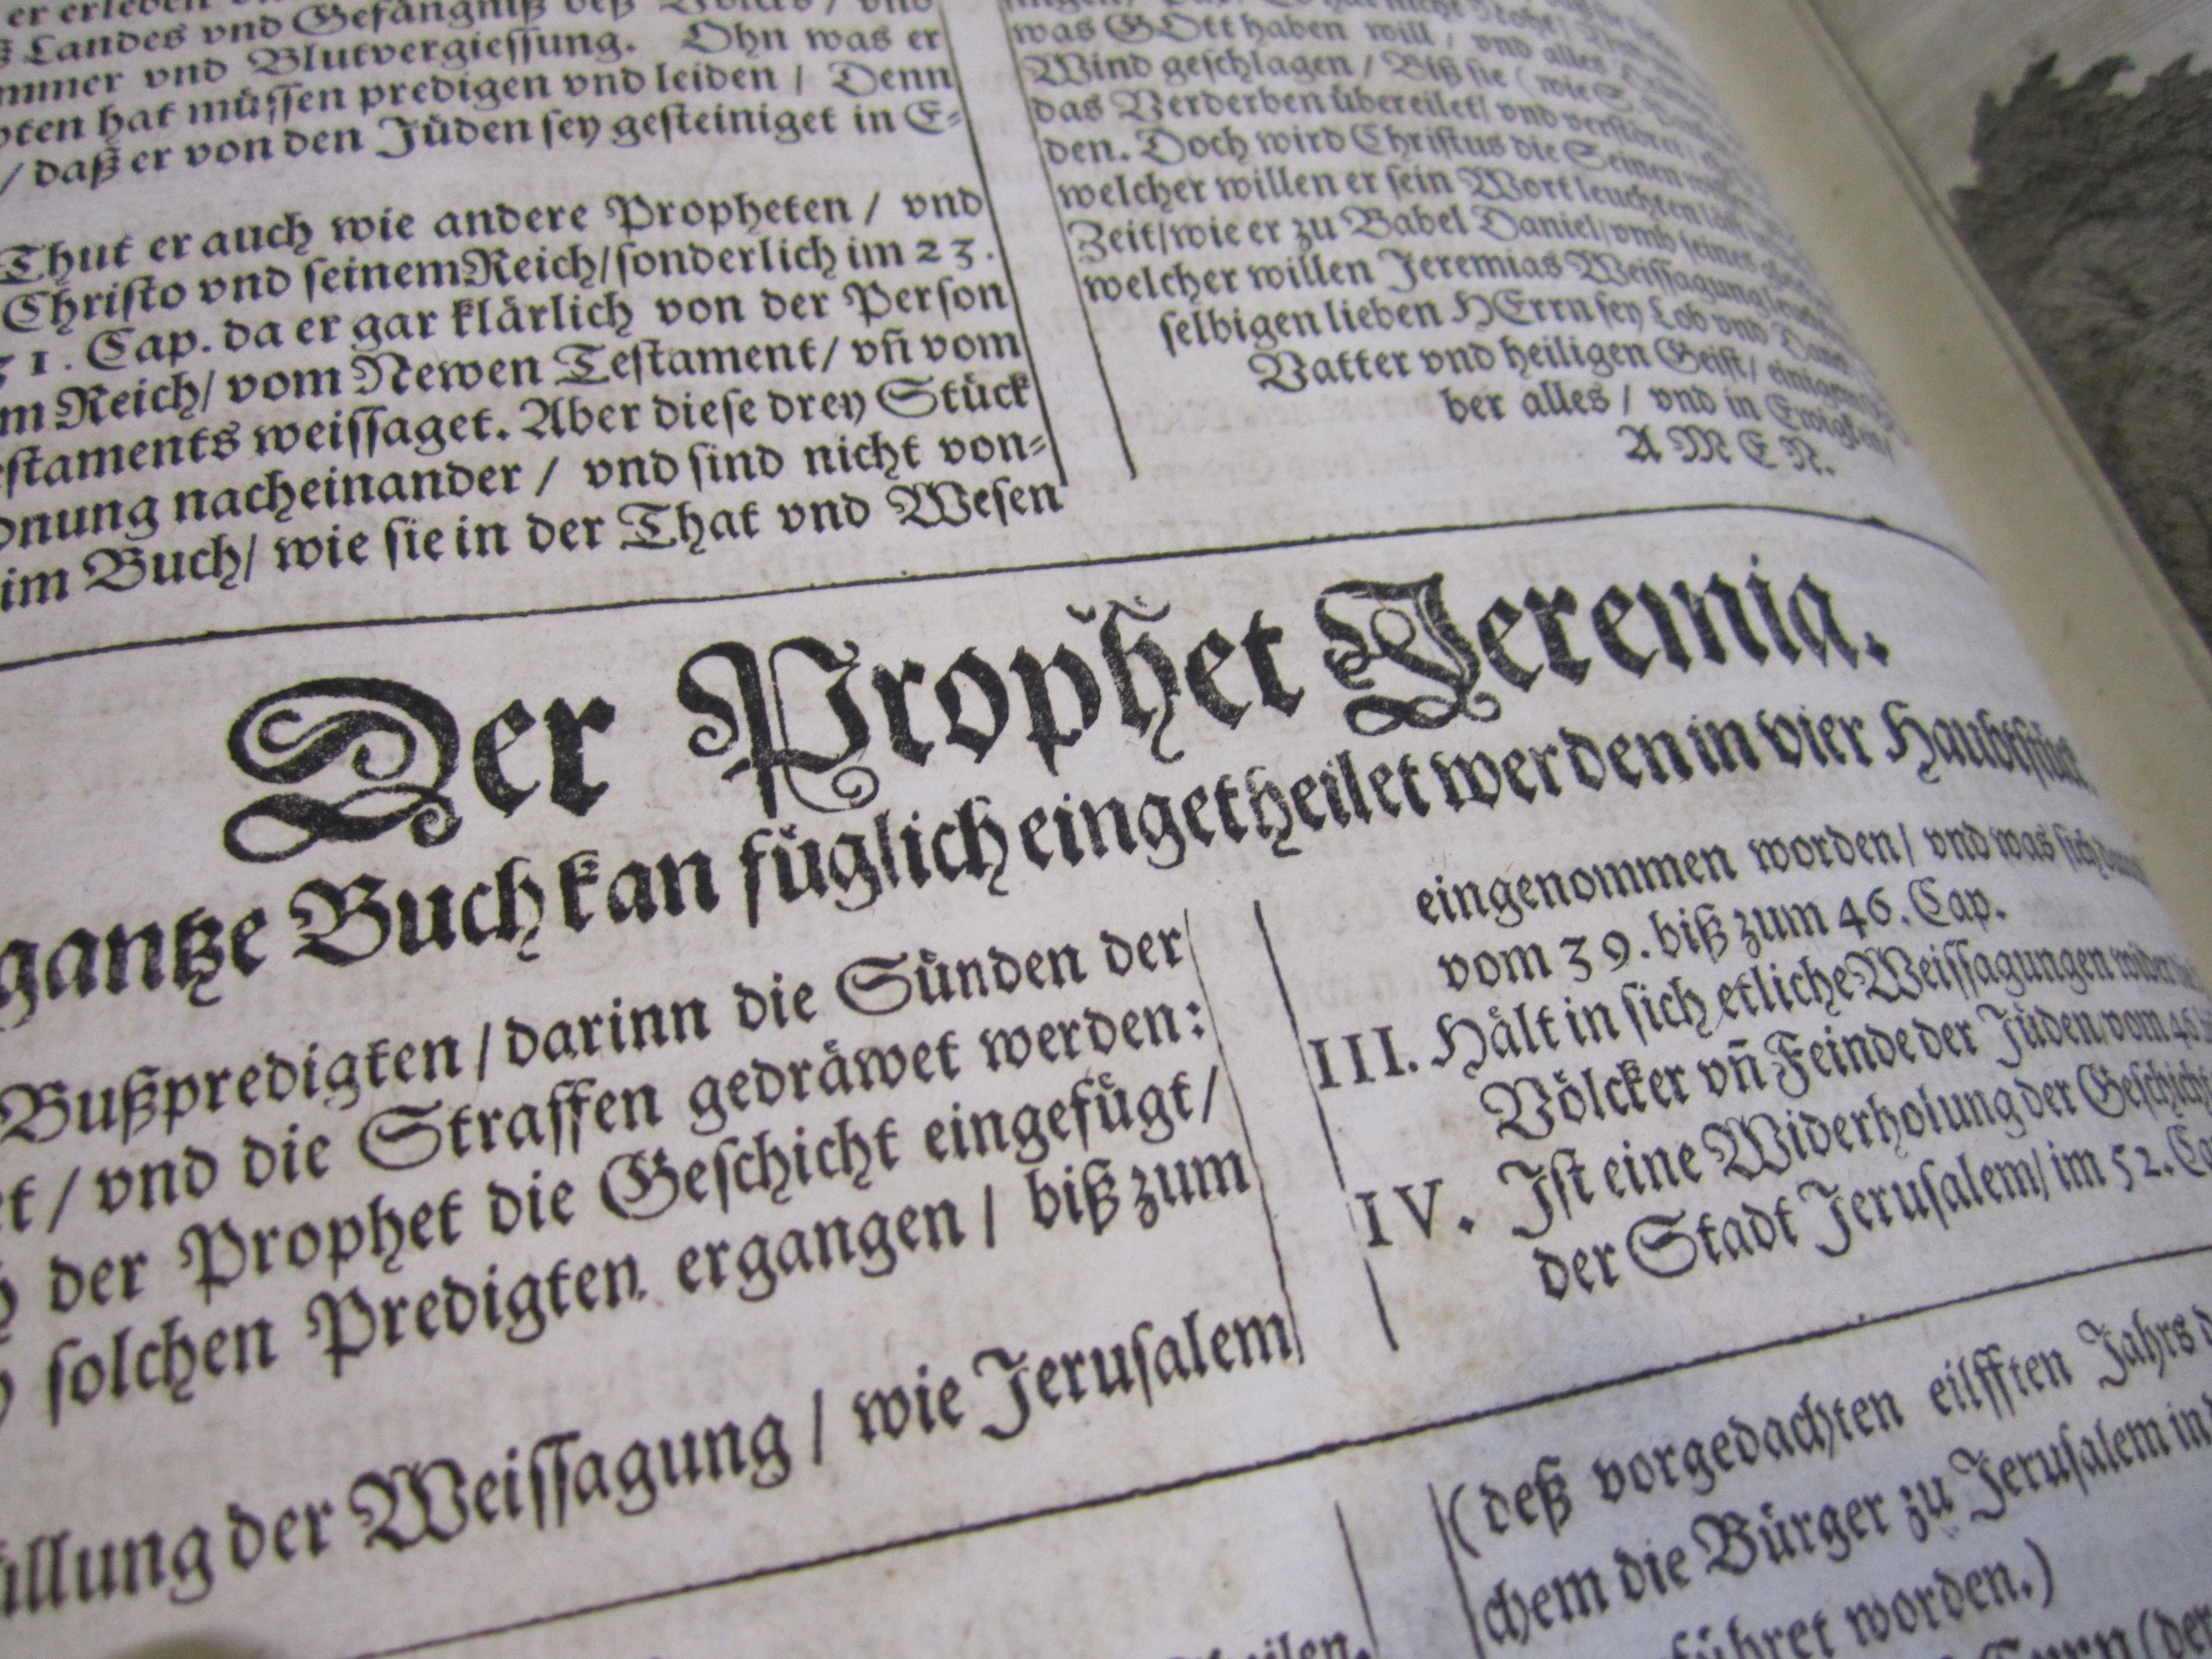 Landes vnd Gefängniß deß Volcks / vnd
vnd Blutvergiessung. Ohn was er
hat müssen predigen vnd leiden / Denn
/ daß er von den Jüden sey gesteiniget in E-
Thut er auch wie andere Propheten / vnd
Christo vnd seinem Reich / sonderlich im 23.
31. Cap. da er gar klärlich von der Person
Reich / vom Newen Testament / vñ vom
weissaget. Aber diese drey Stück
nacheinander / vnd sind nicht von-
im Buch / wie sie in der That vnd Wesen
was GOtt haben will / vnd alles
Wind geschlagen / Biß sie ( wie S.
das Verderben übereilet / vnd verstöret
den. Doch wird Christus die Seinen
welcher willen er sein Wort leuchten läst
Zeit / wie er zu Babel Daniel / vmb seines
welcher willen Jeremias Weissagung
selbigen lieben HErrn sey Lob vnd Danck
Vatter vnd heiligen Geist / einigem
ber alles / vnd in Ewigkeit /
AMEN.
Der Prophet Jeremia.
gantze Buch kan füglich eingetheilet werden in vier Haubtstück.
Bußpredigten / darinn die Sünden der
/ vnd die Straffen gedräwet werden:
der Prophet die Geschicht eingefügt /
solchen Predigten ergangen / biß zum
der Weissagung / wie Jerusalem
eingenommen worden / vnd was sich
vom 39. biß zum 46. Cap.
III. Hält in sich etliche Weissagungen wider
Völcker vñ Feinde der Jüden / vom 46.
IV. Ist eine Widerholung der Geschicht
der Stadt Jerusalem / im 52.
(deß vorgedachten eilfften Jahrs
chem die Bürger zu Jerusalem in
worden.)